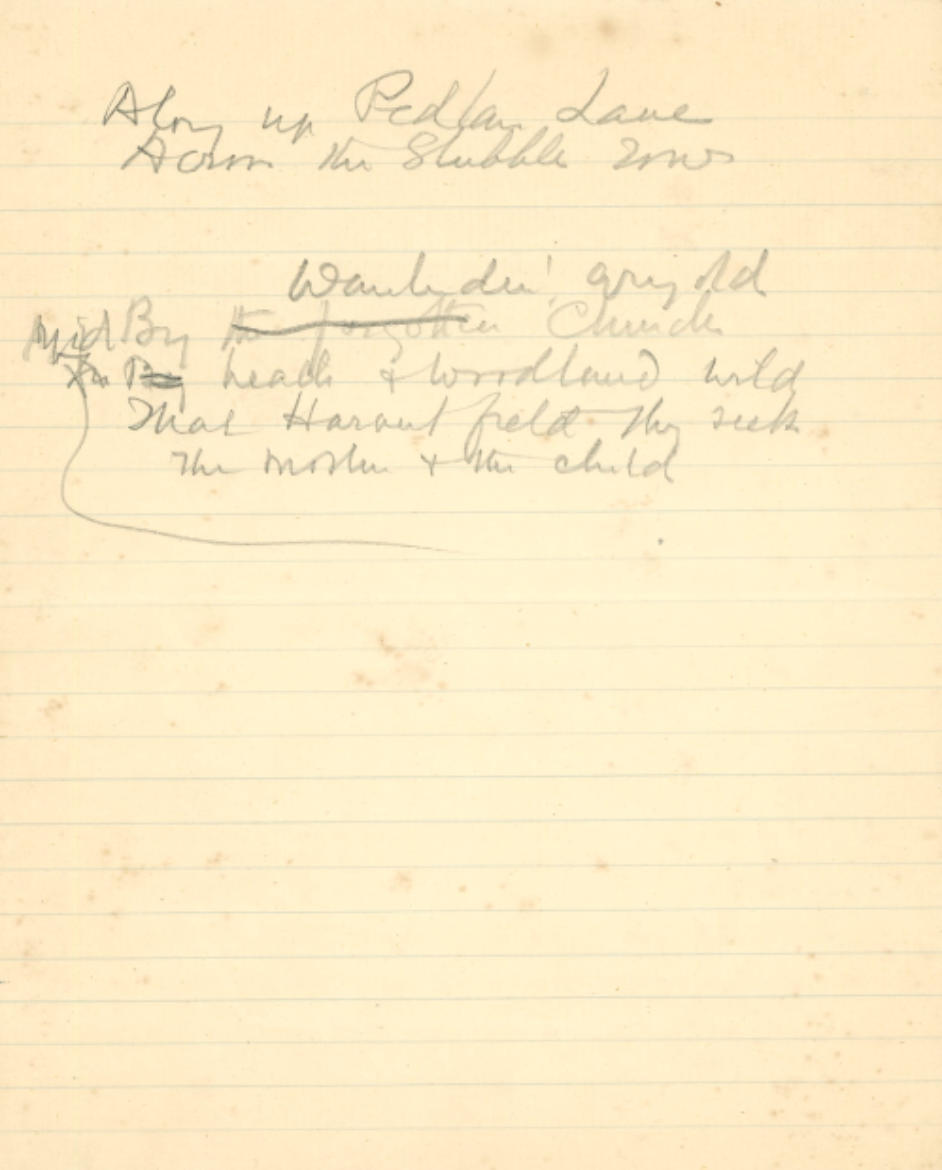 Along up Pedlar Lane
Across the Stubble rows
grey old
Mid By the forgotten Church
By heath & woodland wild
That Harvest field they seek
The mother & the child